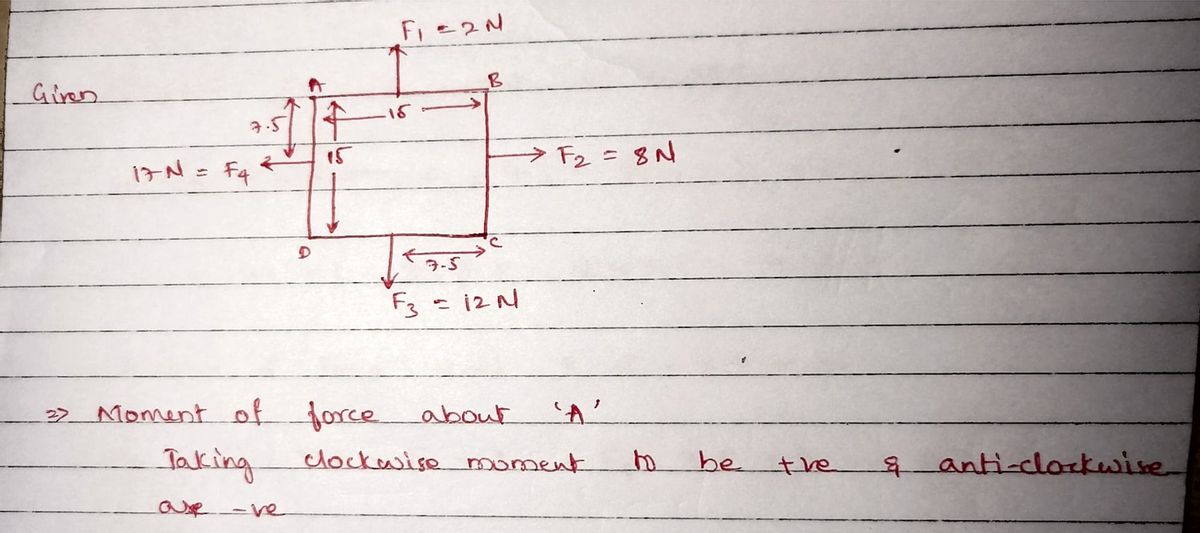 F1 = 2 N
Given
A
B
7.5
15
15
17 N = F4
F2 = 8 N
D
C
7.5
F3 = 12 N
=> Moment of force about 'A'
Taking clockwise moment to be +ve & anti-clockwise
are -ve